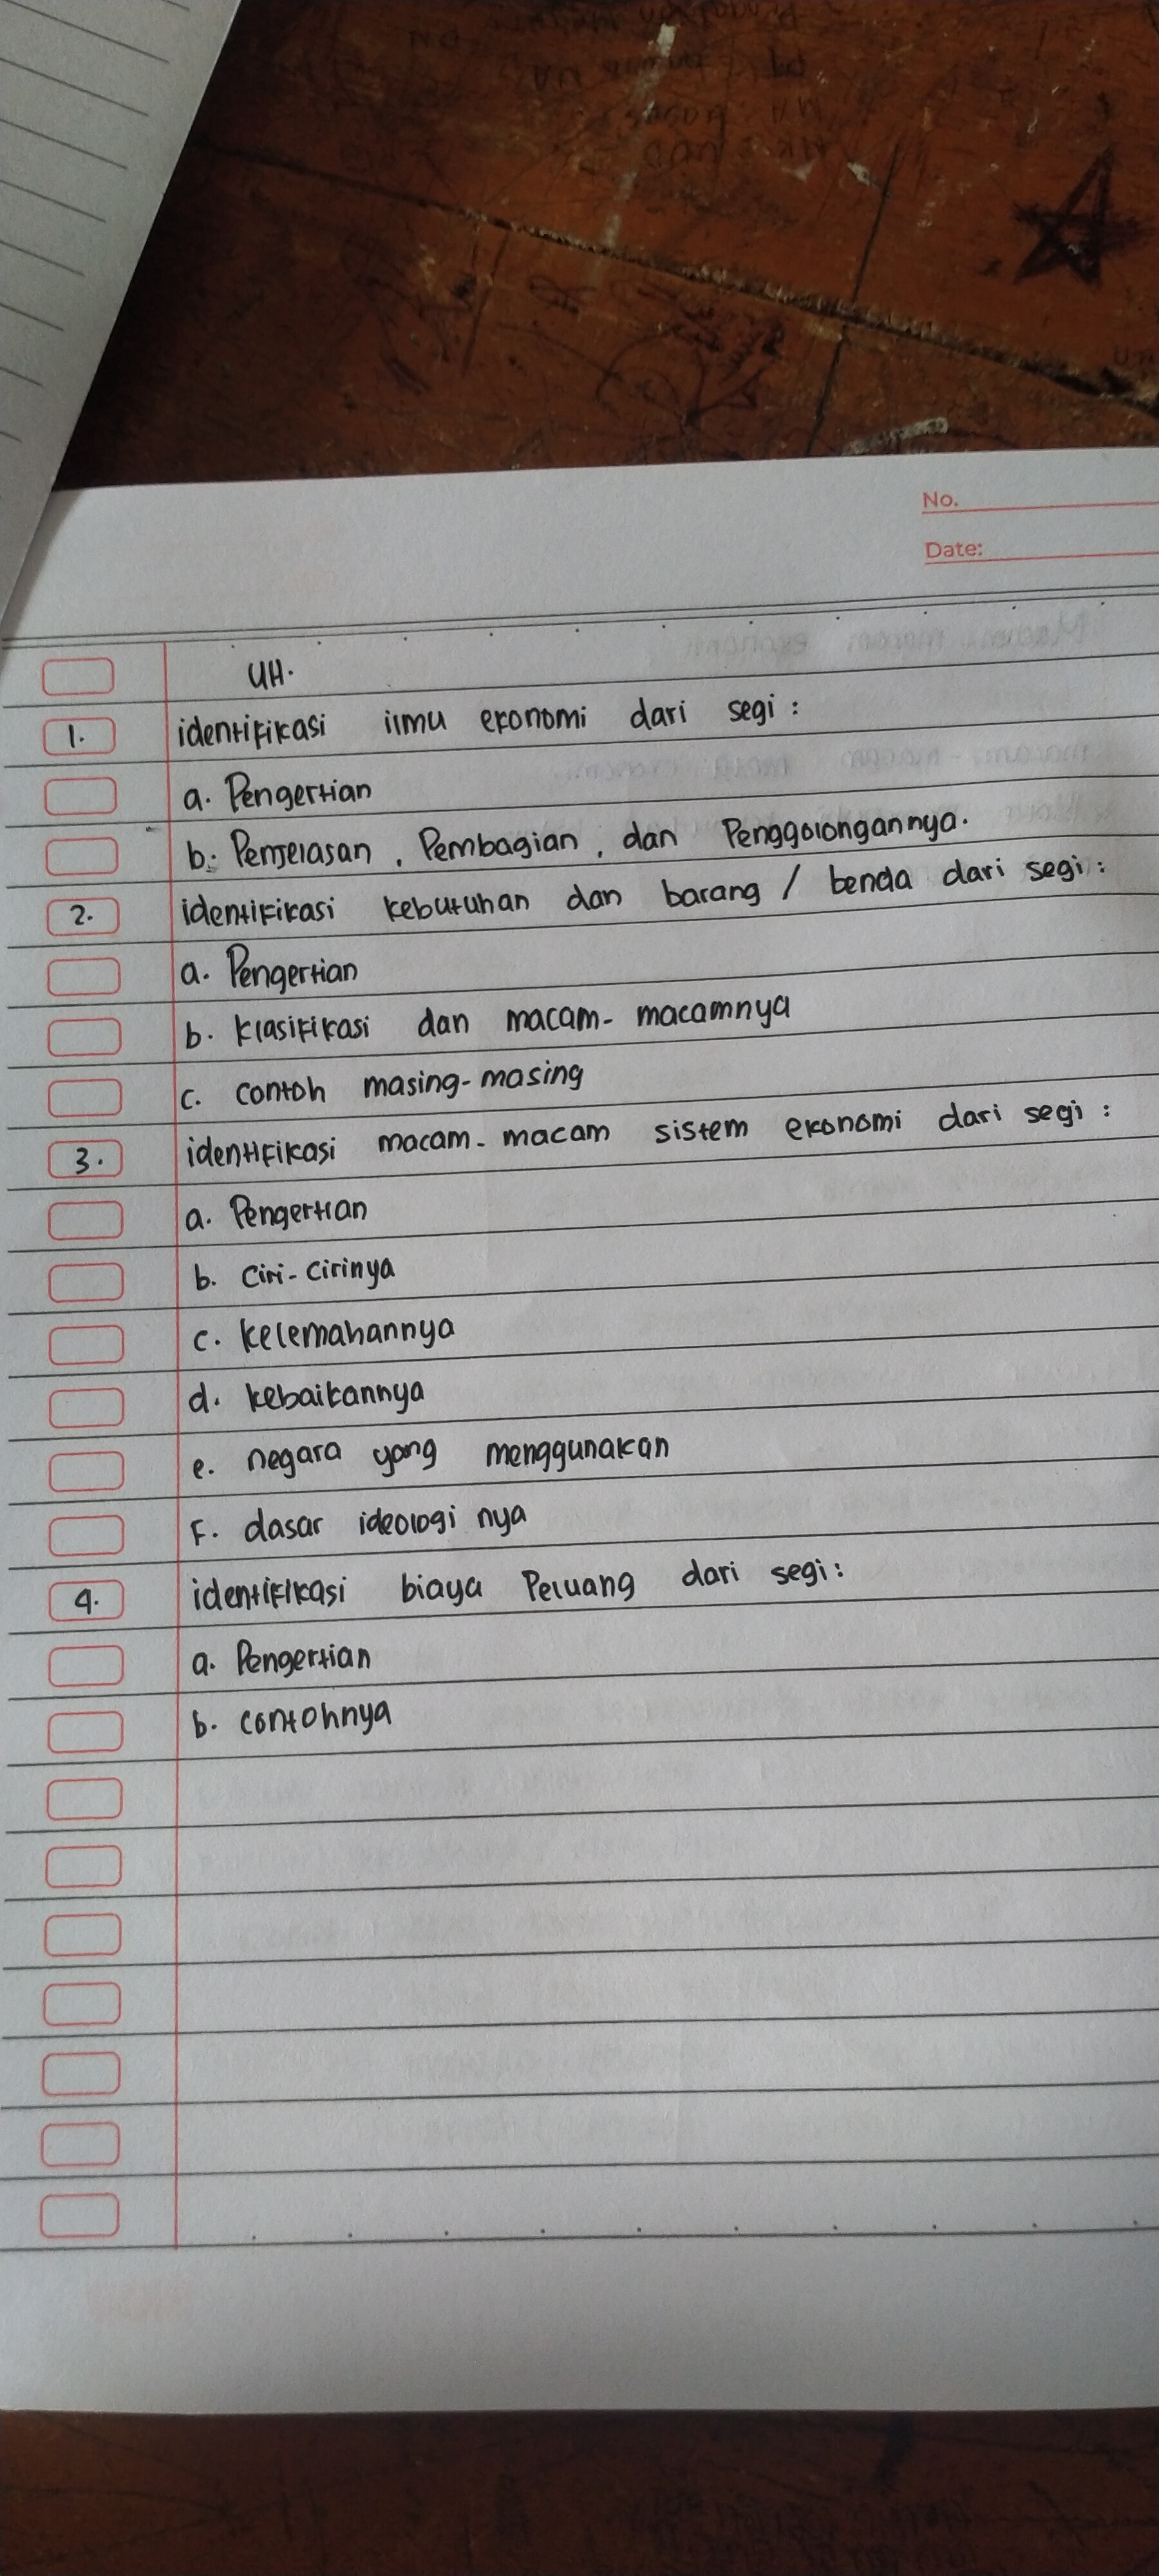 No.
Date:
UH.
1. identifikasi ilmu ekonomi dari segi :
a. Pengertian
b. Penjelasan, Pembagian, dan Penggolongannya.
2. identifikasi kebutuhan dan barang / benda dari segi :
a. Pengertian
b. klasifikasi dan macam-macamnya
c. contoh masing-masing
3. identifikasi macam-macam sistem ekonomi dari segi :
a. Pengertian
b. Ciri-cirinya
c. kelemahannya
d. kebaikannya
e. negara yang menggunakan
F. dasar ideologi nya
4. identifikasi biaya Peluang dari segi :
a. Pengertian
b. contohnya